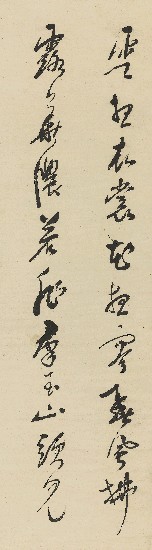 雲想衣裳花想容春風拂
露華濃若非群玉山頭見